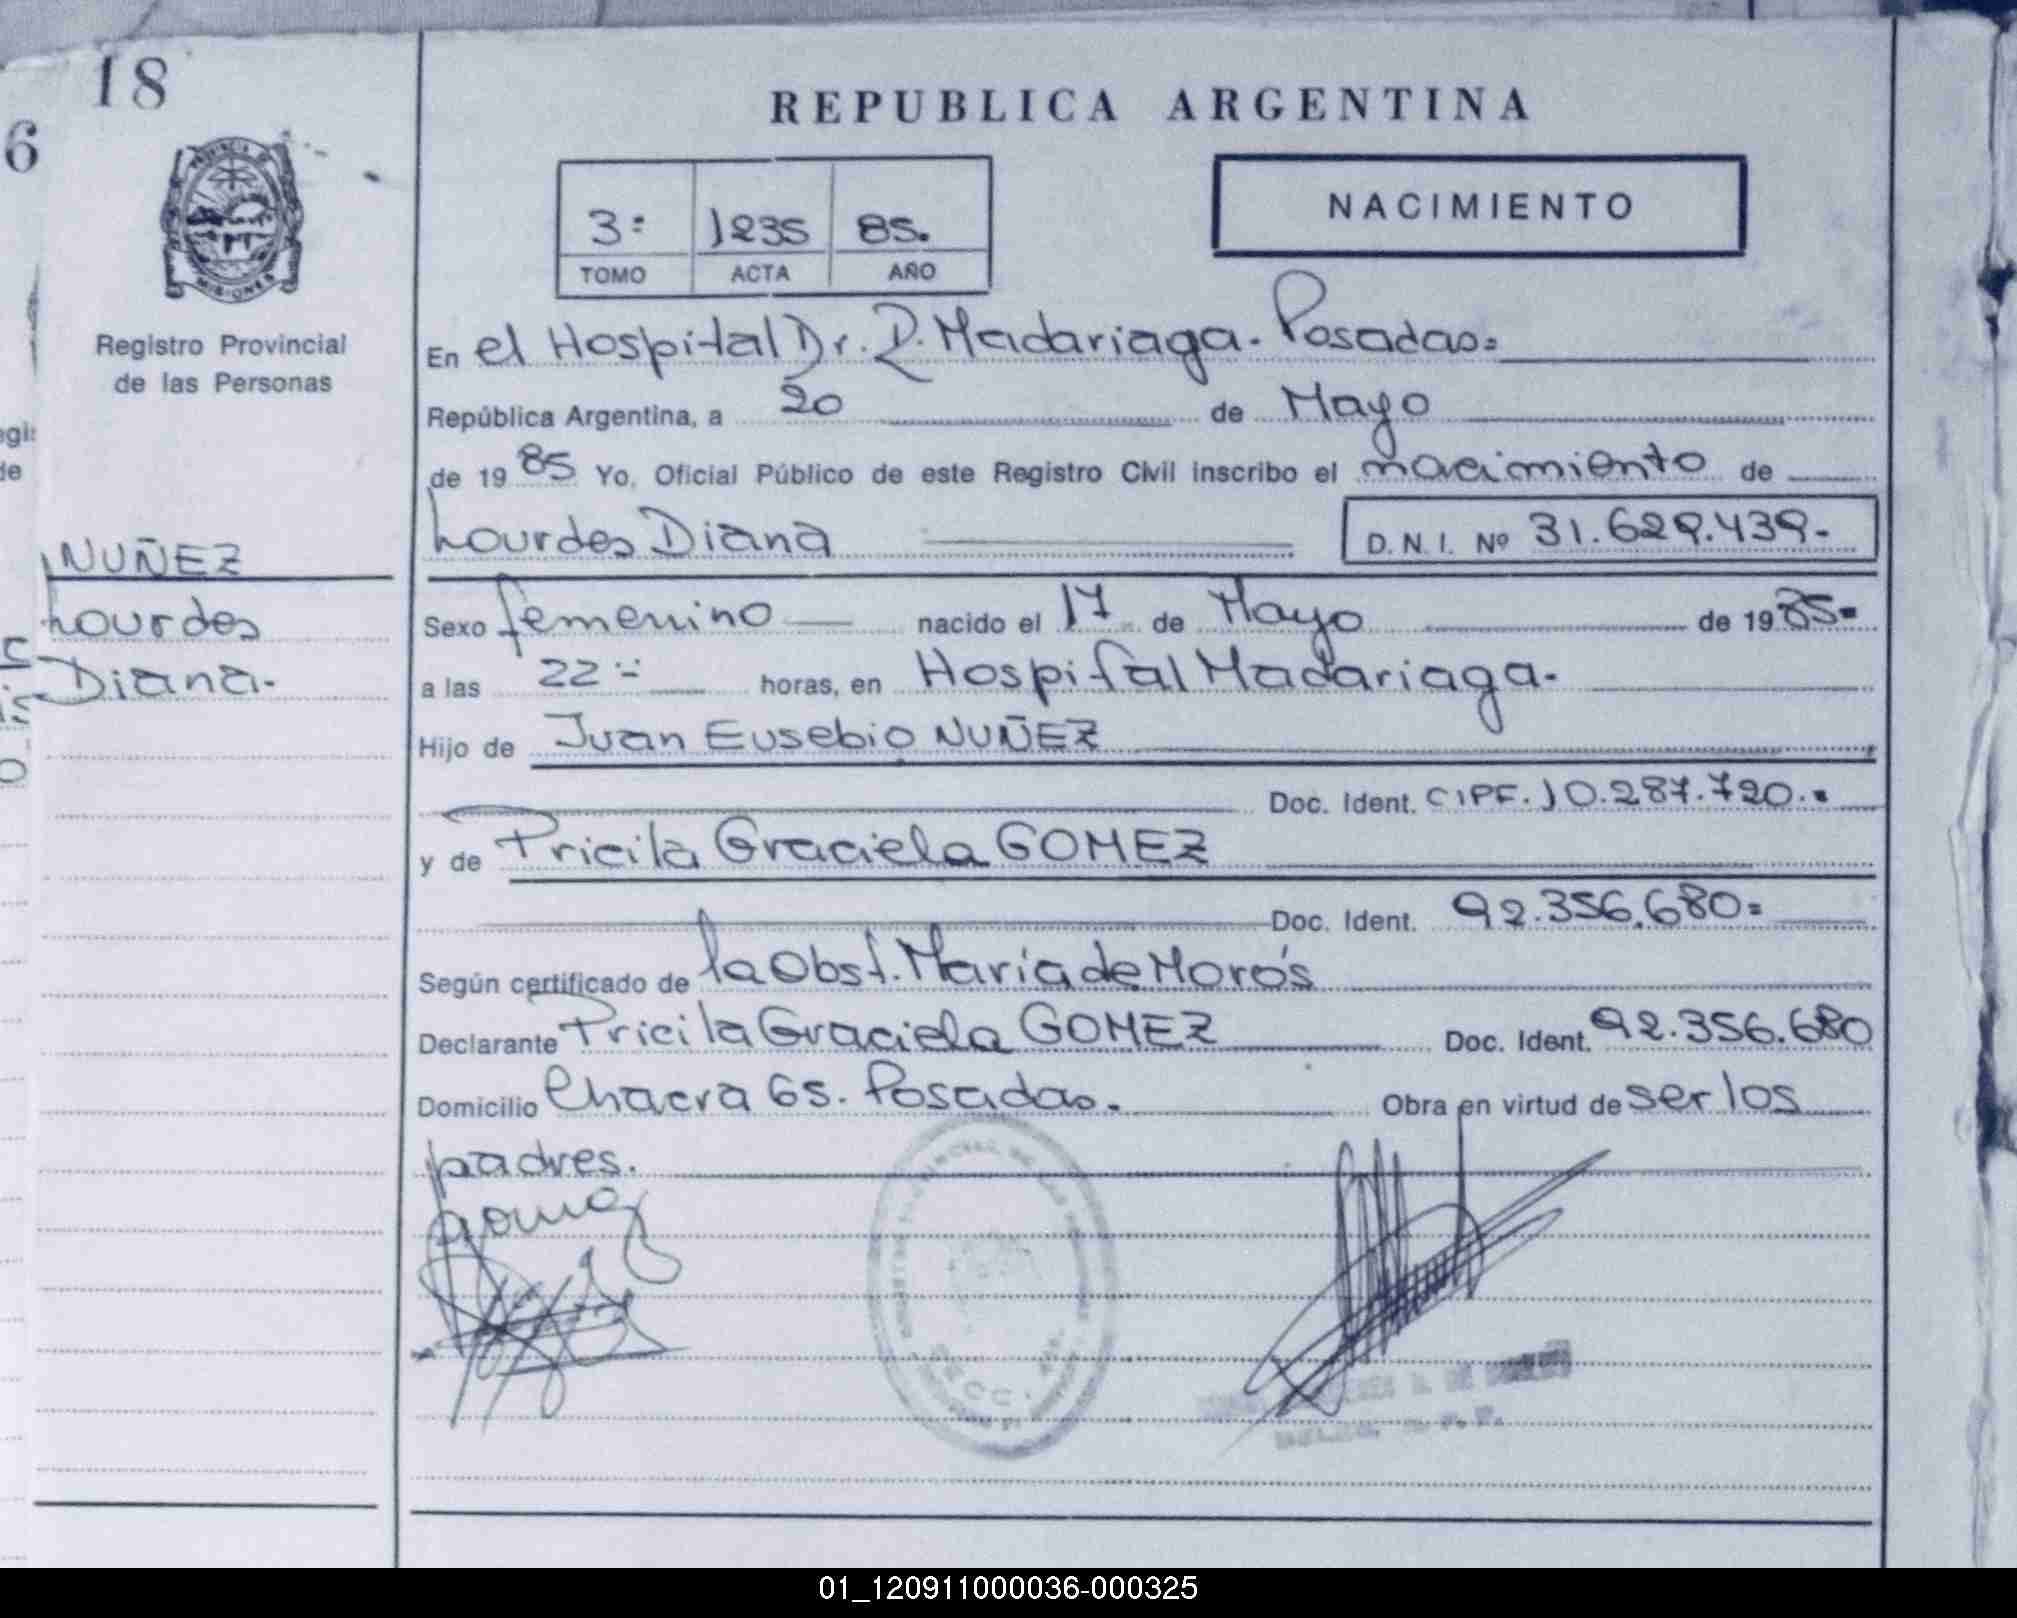 18
6
PROVINCIA DE
MISIONES
Registro Provincial
de las Personas
NUÑEZ
Lourdes
Diana.
REPUBLICA ARGENTINA
3: 1235 85.
TOMO ACTA AÑO
NACIMIENTO
En el Hospital Dr. R. Madariaga. Posadas=
República Argentina, a 20 de Mayo
de 1985 Yo, Oficial Público de este Registro Civil inscribo el nacimiento de
Lourdes Diana D. N. I. Nº 31.629.439.-
Sexo femenino nacido el 17 de Mayo de 1985=
a las 22:- horas, en Hospital Madariaga.
Hijo de Juan Eusebio NUÑEZ
Doc. Ident. CIPF. 10.287.720.=
y de Pricila Graciela GOMEZ
Doc. Ident. 92.356.680=
Según certificado de la Obst. María de Morós
Declarante Pricila Graciela GOMEZ Doc. Ident. 92.356.680
Domicilio Chacra 65. Posadas. Obra en virtud de ser los
padres.
Gomez
01_120911000036-000325